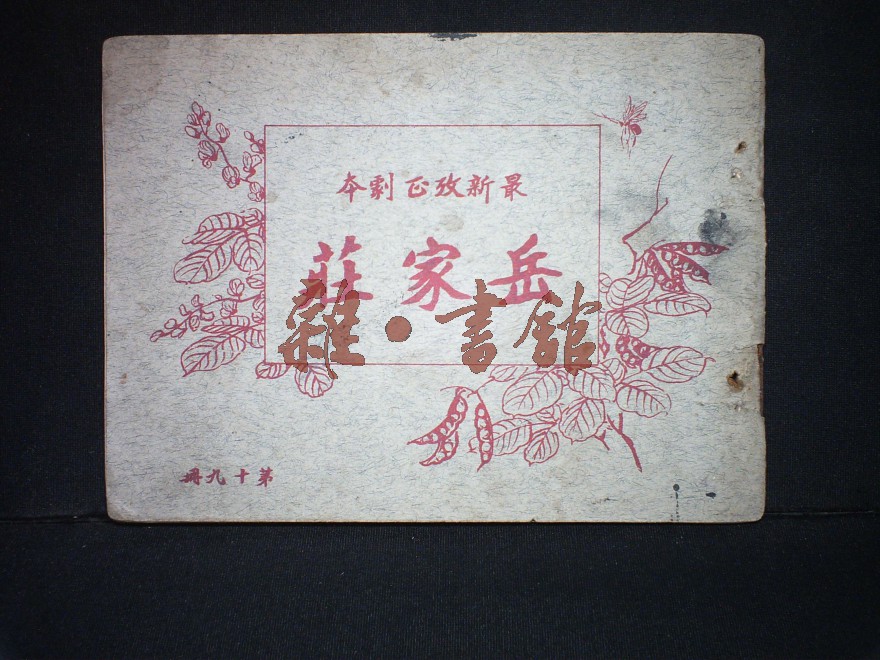 最新改正劇本
岳家莊
雜•書館
第十九冊